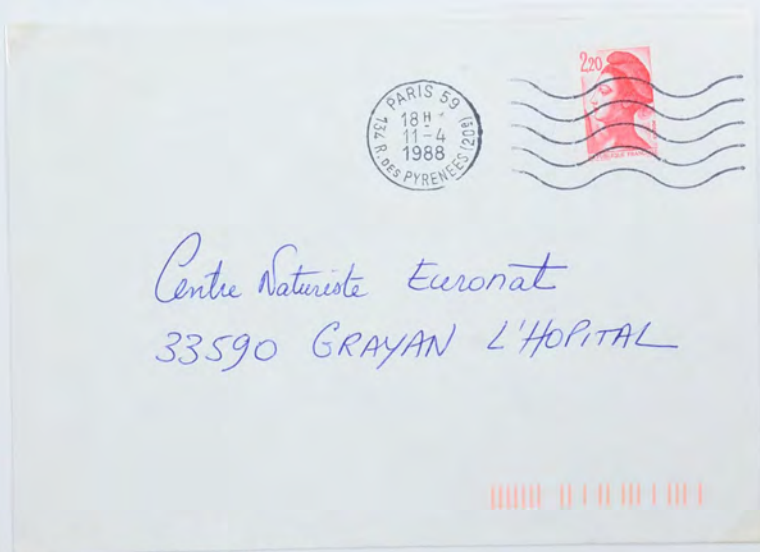 2,20
PARIS 59
18 H
11-4
1988
134 R. DES PYRENEES (20e)
REPUBLIQUE FRANC
Centre Naturiste Euronat
33590 GRAYAN L'HOPITAL